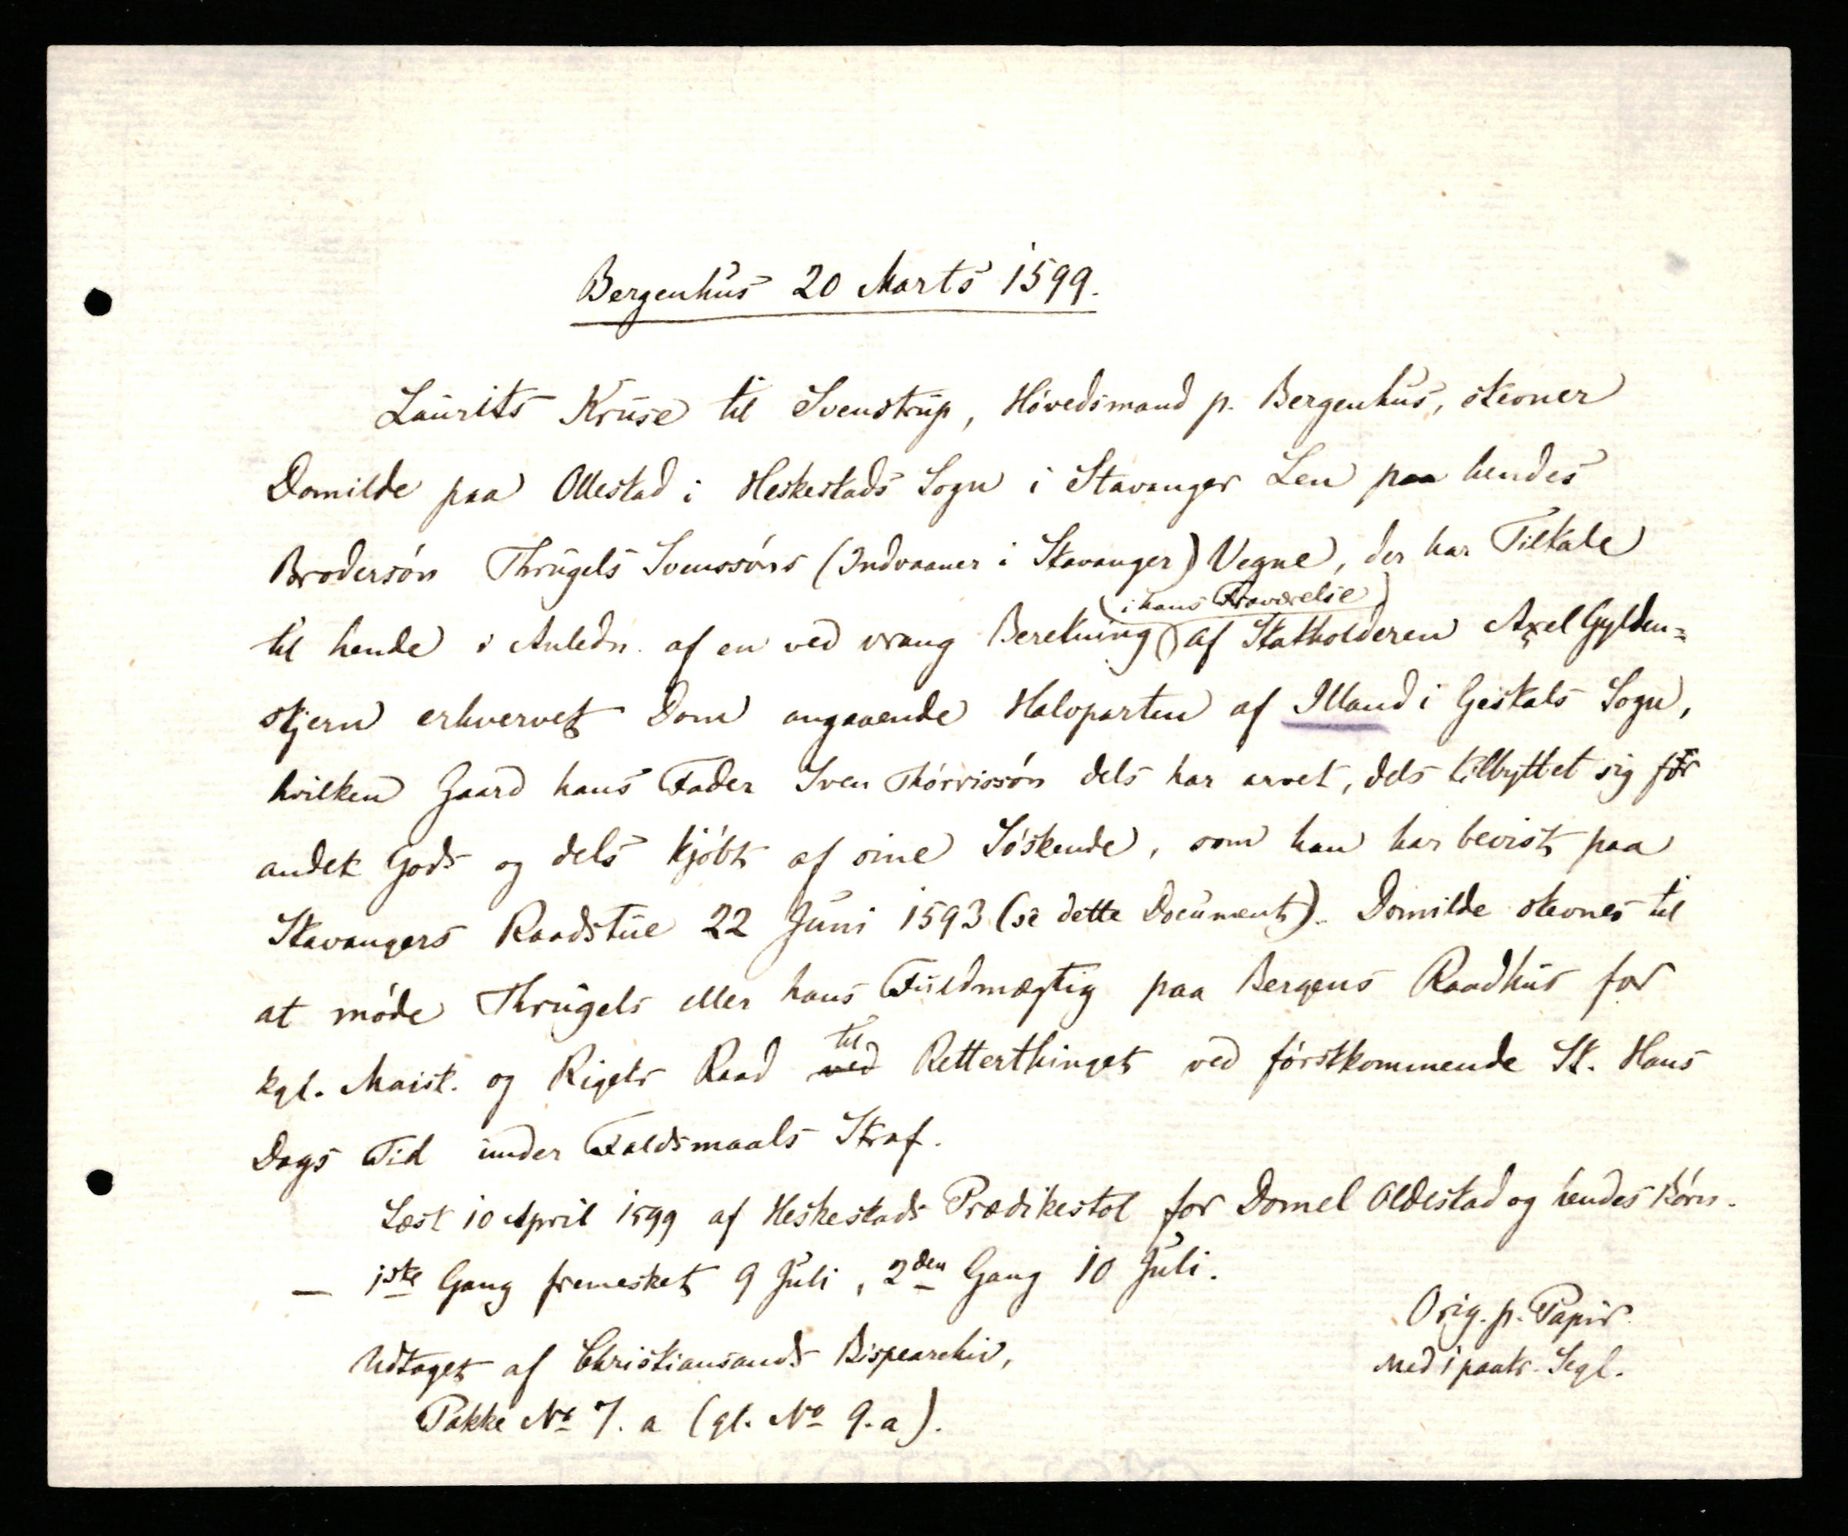 Bergenhus 20 Marts 1599.
Laurits Kruse til Svenstrup, Høvedsmand p. Bergenhus, stevner
Domilde paa Ollestad i Heskestads Sogn i Stavanger Len paa hendes
Brodersøn Thrugels Svenssøns (Indvaaner i Stavanger) Vegne, der har Tiltale
(i hans Fraværelse)
til hende i Anledn. af en ved vrang Beretning af Statholderen Axel Gylden=
stjern erhvervet Dom angaaende Halvparten af Illand i Gjestals Sogn,
hvilken Gaard hans Fader Sven Thórrissøn dels har arvet, dels tilbyttet sig for
andet Gods og dels kjøbt af sine Søskende, som han har bevist paa
Stavangers Raadstue 22 Juni 1593 (se dette Document). Domilde stevnes til
at møde Thrugels eller hans Fuldmægtig paa Bergens Raadhus for
kgl. Maist. og Rigets Raad ved til Retterthinget ved førstkommende St. Hans
Dags Tid under Faldsmaals Straf.
Læst 10 April 1599 af Heskestads Prædikestol for Domel Oldestad og hendes Børn.
— 1ste Gang fremesket 9 Juli, 2den Gang 10 Juli.
Orig. p. Papir
Udtaget af Christiansands Bispearchiv,
med 1 paatr. Segl.
Pakke No 7. a (gl. No 9. a).